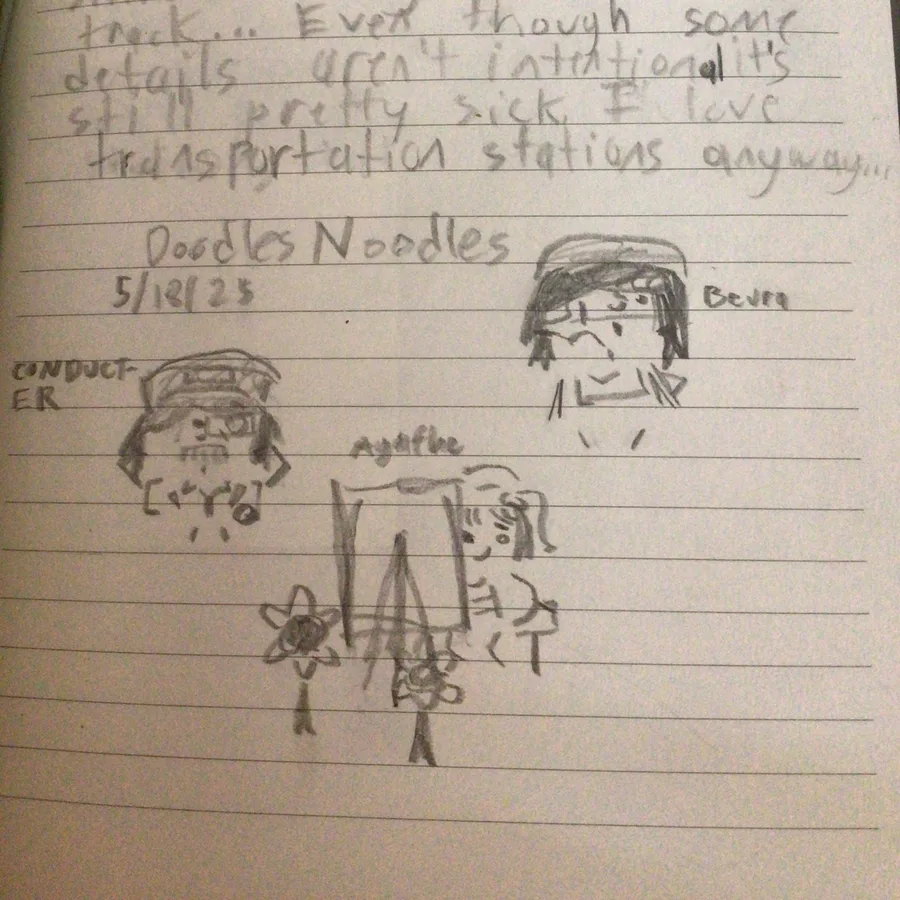 track... Even though some
details aren't intentional it's
still pretty sick I love
transportation stations anyway...
Doodles Noodles
5/18/25
Beura
CONDUCT-
ER